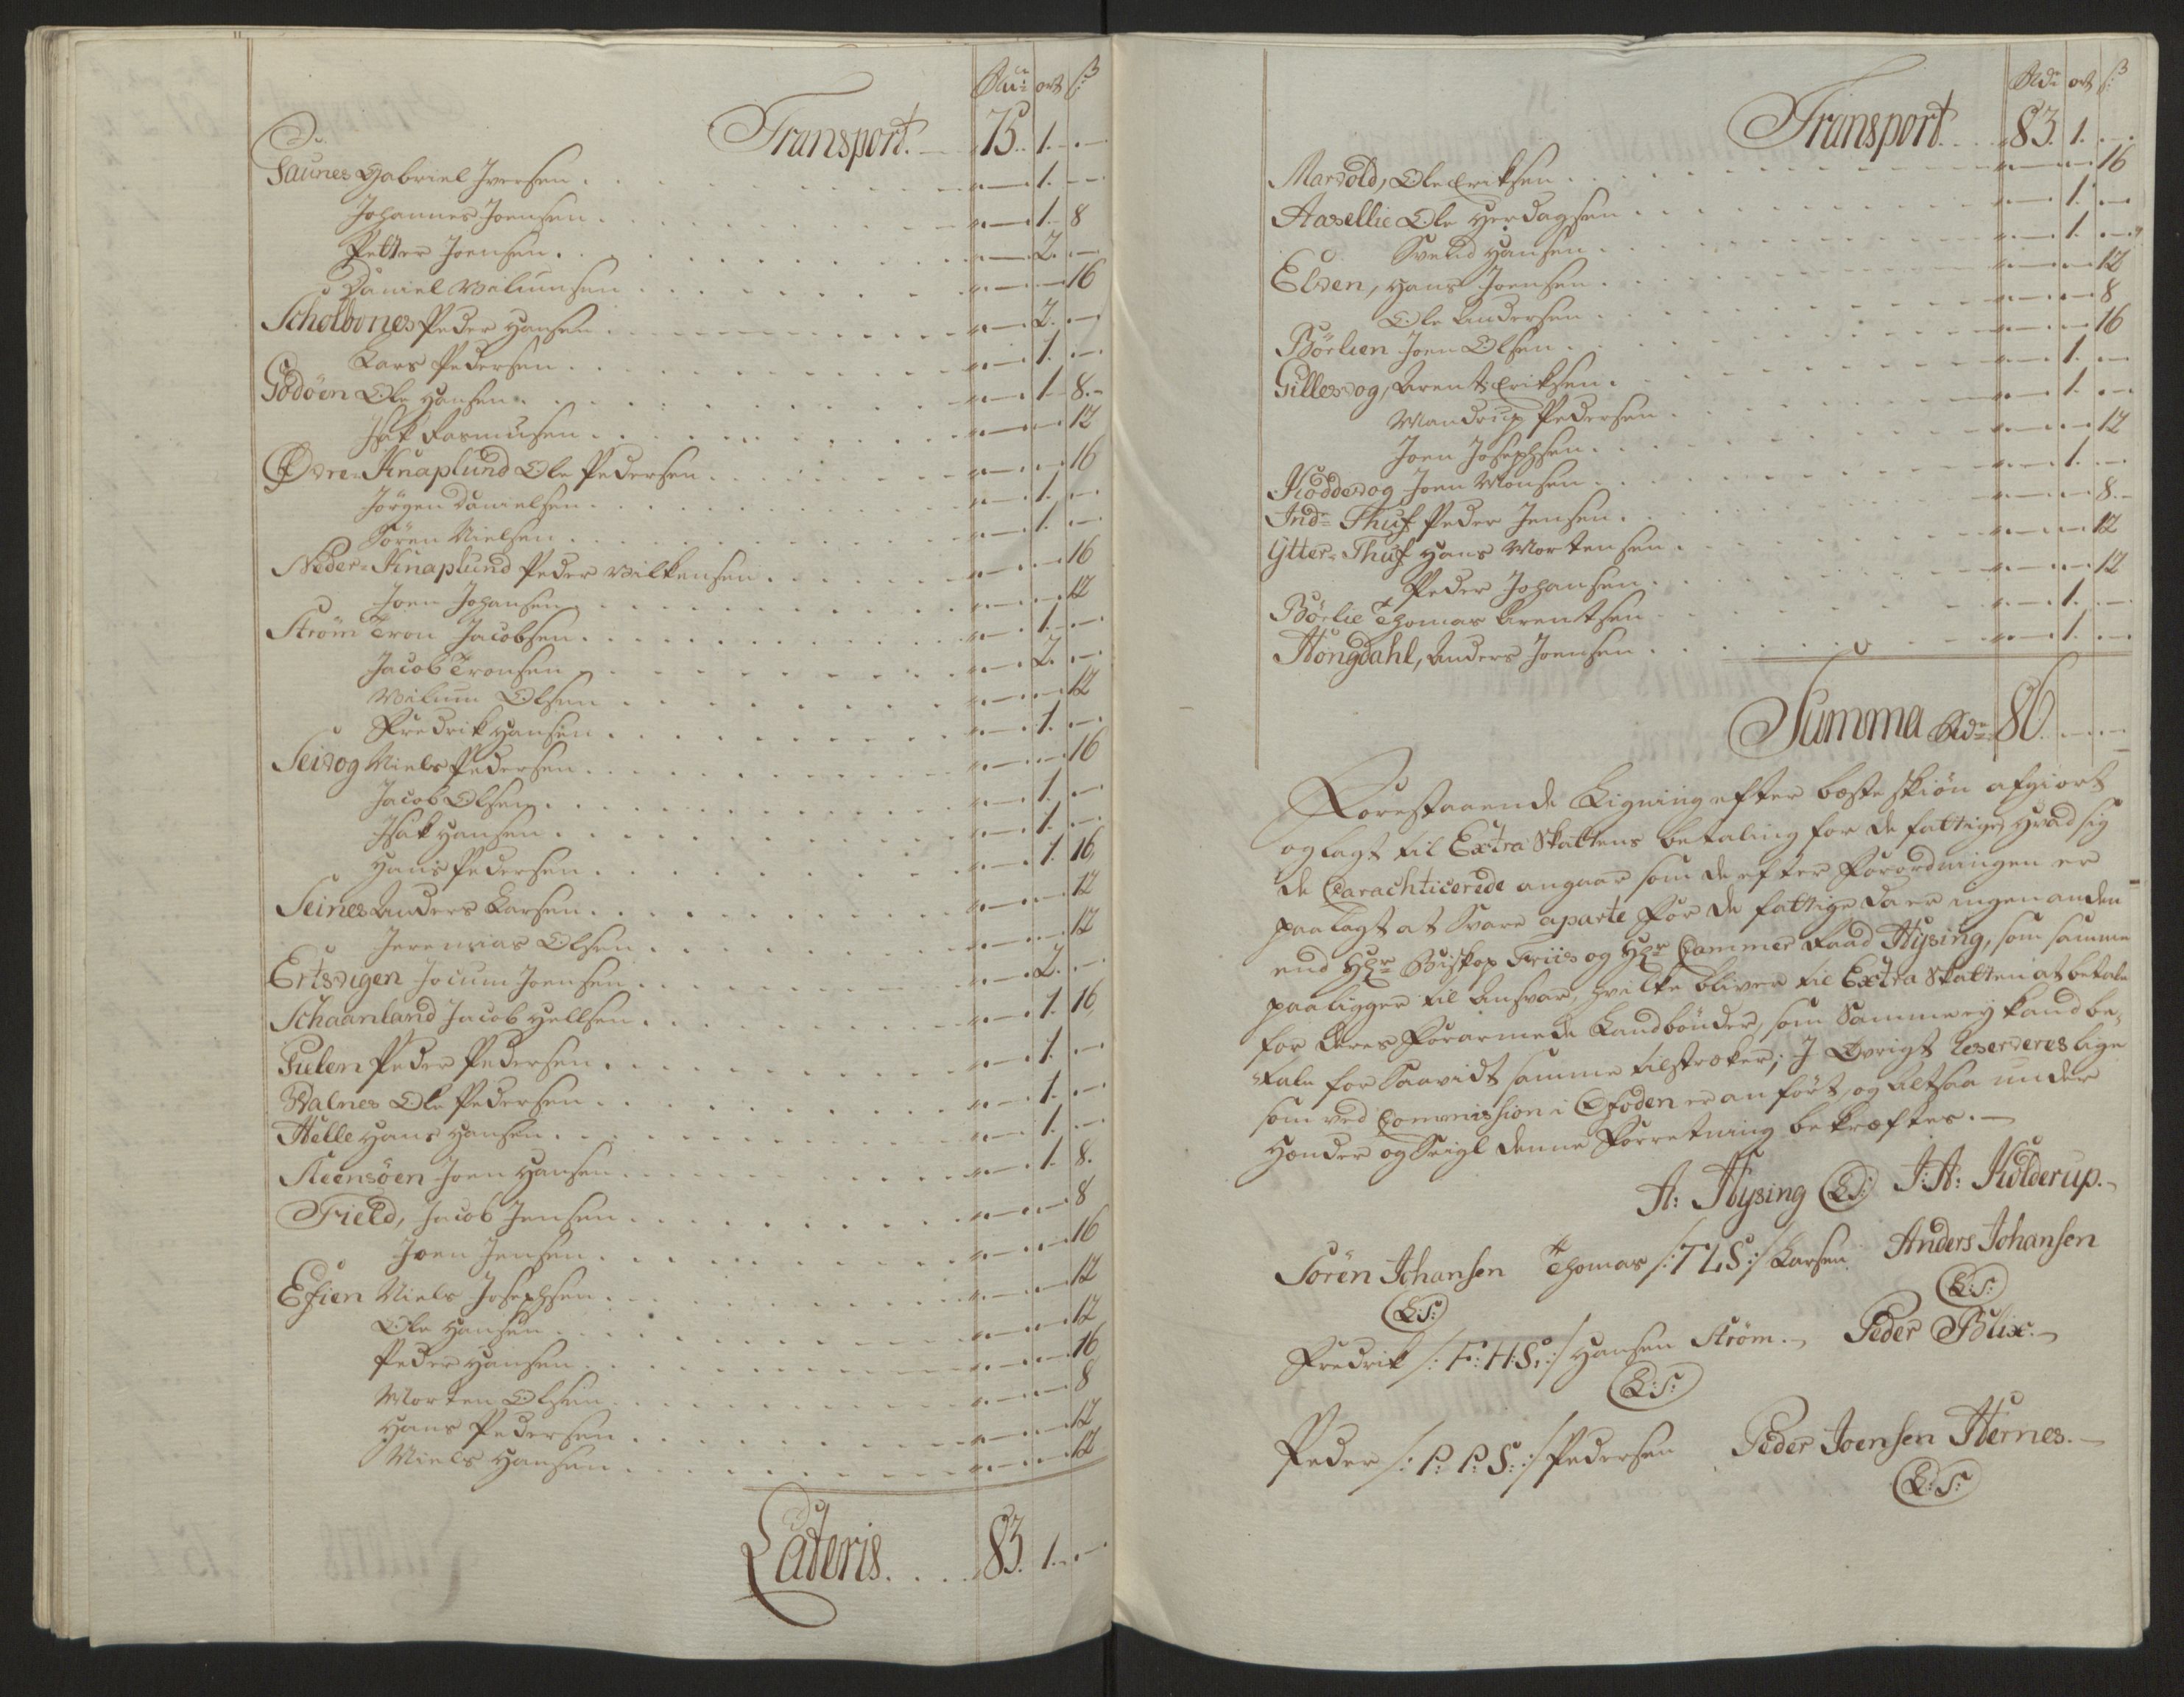 Rdr ort ß
Transport. 75. 1. -
Saunes Gabriel Iversen. 1. -
Johannes Joensen. 1. 8
Petter Joensen. 2. -
Daniel Villumsen 16
Scholbones Peder Hansen. 2. -
Lars Pedersen. 1. -
Godöen Ole Hansen. 1 8.-
Isak Rasmusen. 12
Øvre-Knaplund Ole Pedersen. 16
Jörgen Danielsen. 1. -
Sören Nielsen. 1. -
Neder-Knaplund Peder Vilkensen 16
Joen Johansen 12
Ström Tron Jacobsen. 1. -
Jacob Tronsen 2. -
Villum Olsen 12
Fredrik Hansen. 1. -
Seivog Niels Pedersen. 16
Jacob Olsen. 1. -
Isak Hansen. 1. -
Hans Pedersen. 1. 16
Seines Anders Larsen. 12
Jeremias Olsen 12
Ertsvigen Jocum Joensen. 2. -
Schaanland Jacob Hellsen. 1. 16
Tuelen Peder Pedersen. 1. -
Valnes Ole Pedersen. 1. -
Helle Hans Hansen. 1. -
Steensöen Joen Hansen. 1. 8.
Field, Jacob Jensen. 8
Joen Jensen. 16
Efien Niels Josephsen. 12
Ole Hansen. 12
Peder Hansen. 16
Morten Olsen. 8
Hans Pedersen. 12
Niels Hansen. 12
Lateris. 83. 1. -
Rdr ort ß
Transport. 83. 1. -
Marvold, Ole Eriksen. 16
Aasellie Ole Herdagsen 1. -
Svend Hansen. 1. -
Elven, Hans Joensen. 12
Ole Andersen. 8
Börlien Joen Olsen. 16
Gillesvog, Arent Eriksen. 1. -
Mandrup Pedersen. 1. -
Joen Josephsen. 12
Koddevog Joen Monsen. 1. -
Indr Thuf Peder Jensen. 8.-
Ytter-Thuf Hans Mortensen. 12
Peder Johansen. 12
Börlie Thomas Arentsen 1. -
Hongdahl, Anders Joensen. 1. -
Summa Rdr 86. - -
Forestaaende Ligning efter beste skiön afgiort
og lagt til Extra Skattens betaling for de fattige, hvad sig
de Carachticerede angaar som de efter Forordningen er
paalagt at Svare aparte for de fattige da er ingen anden
end Hr Biskop Friis og Hr Cammer Raad Hysing, som samme
paaligger til Ansvar, hvilke bliver til Extra Skatten at betale
for deres Forarmede Landbönder, som Samme ey kand be-
tale for Saavidt samme tilstreker; I Övrigt Reserveres lige
som ved Commishion i Ofoden er anfört, og altsaa under
Hænder og Seigl denne Forretning bekræftes.-
A: Hysing (L:S:) J: A: Kolderup.-
Sören Johansen Thomas /: T L S :/ Larsen Anders Johansen
(L:S:) (L:S:)
Fredrik /: F: H: S: :/ Hansen Ström.- Peder Blix.-
(L:S:)
Peder /: P: P: S: :/ Pedersen Peder Joensen Hernes.-
(L:S:)